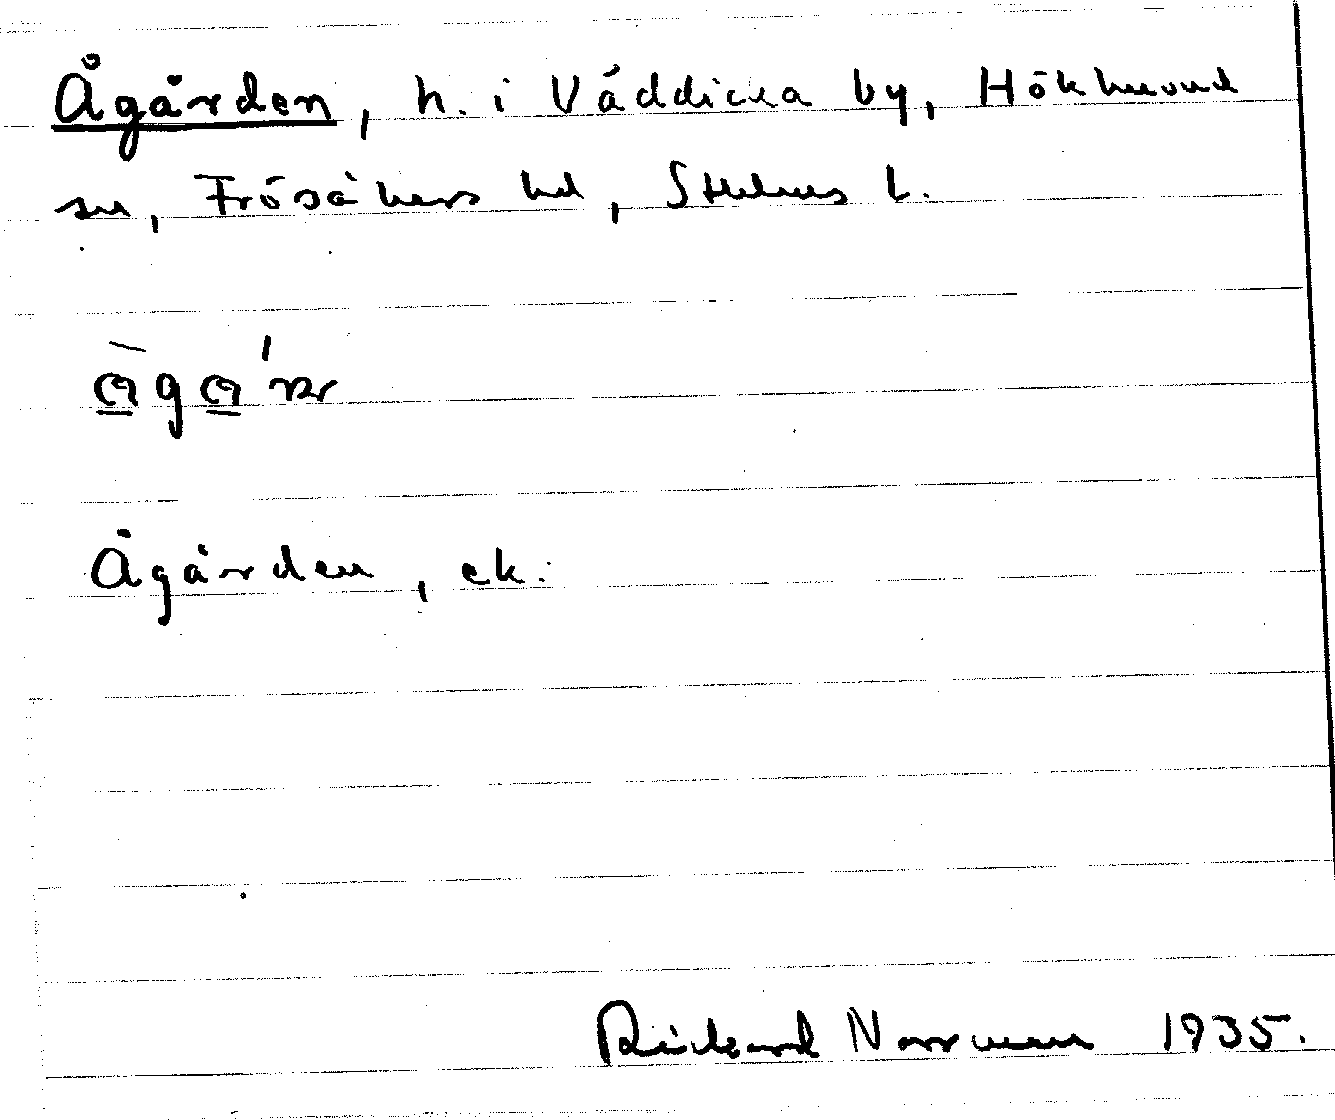 Ågården, h. i Väddicka by, Hökhuvud
sn, Frösåkers hd, Sthlms l.
Ågården, ek.
Rickard Norrman 1935.